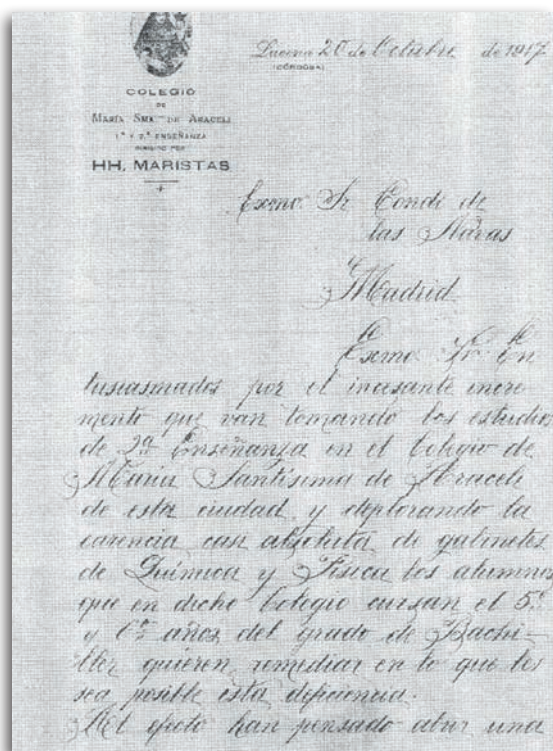 Lucena 20 de Octubre de 1917
(CÓRDOBA)
COLEGIO
DE
MARÍA SMA DE ARACELI
1.ª Y 2.ª ENSEÑANZA
DIRIGIDO POR
HH. MARISTAS
Excmo. Sr. Conde de
las Navas
Madrid
Excmo. Sr. En
tusiasmados por el incesante incre
mento que van tomando los estudios
de 2ª Enseñanza en el Colegio de
María Santísima de Araceli
de esta ciudad y deplorando la
carencia casi absoluta de gabinetes
de Química y Física los alumnos
que en dicho Colegio cursan el 5º
y 6º años del grado de Bachi-
ller quieren remediar en lo que les
sea posible esta deficiencia.
Al efecto han pensado abrir una